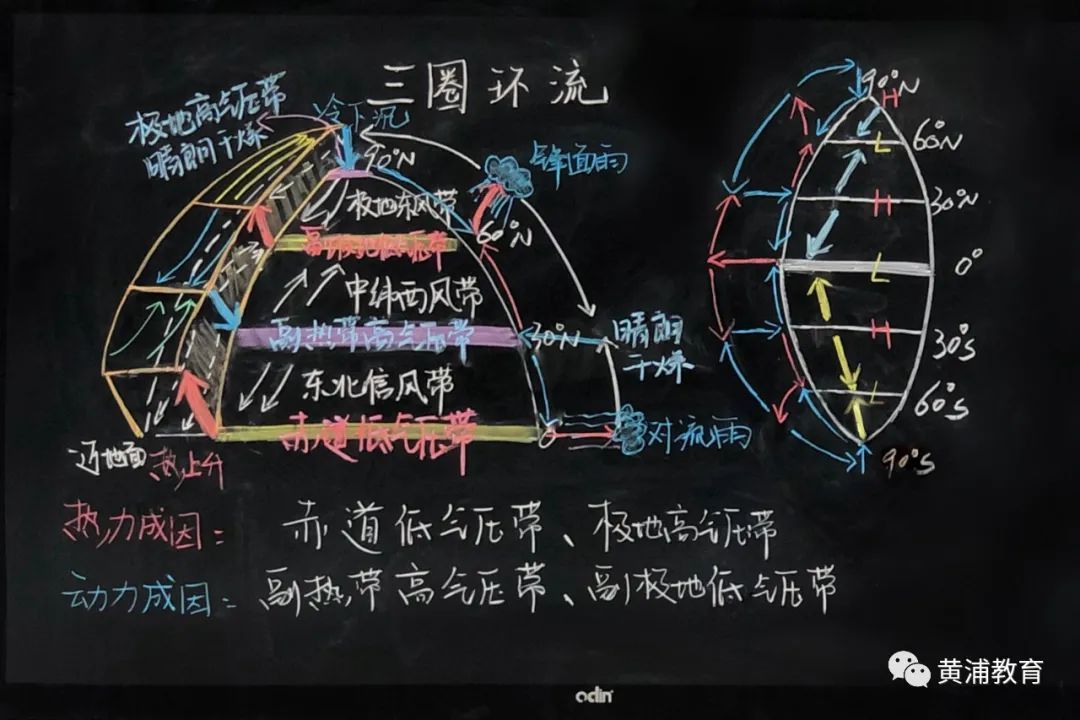 三圈环流
极地高气压带
晴朗干燥
冷下沉
90°N
锋面雨
极地东风带
60°N
副极地低气压带
中纬西风带
副热带高气压带
30°N
晴朗
干燥
东北信风带
赤道低气压带
对流雨
近地面
热上升
90°N
H
L
60°N
H
30°N
L
0°
H
30°S
L
60°S
90°S
热力成因：
赤道低气压带、极地高气压带
动力成因：
副热带高气压带、副极地低气压带
黄浦教育
odin